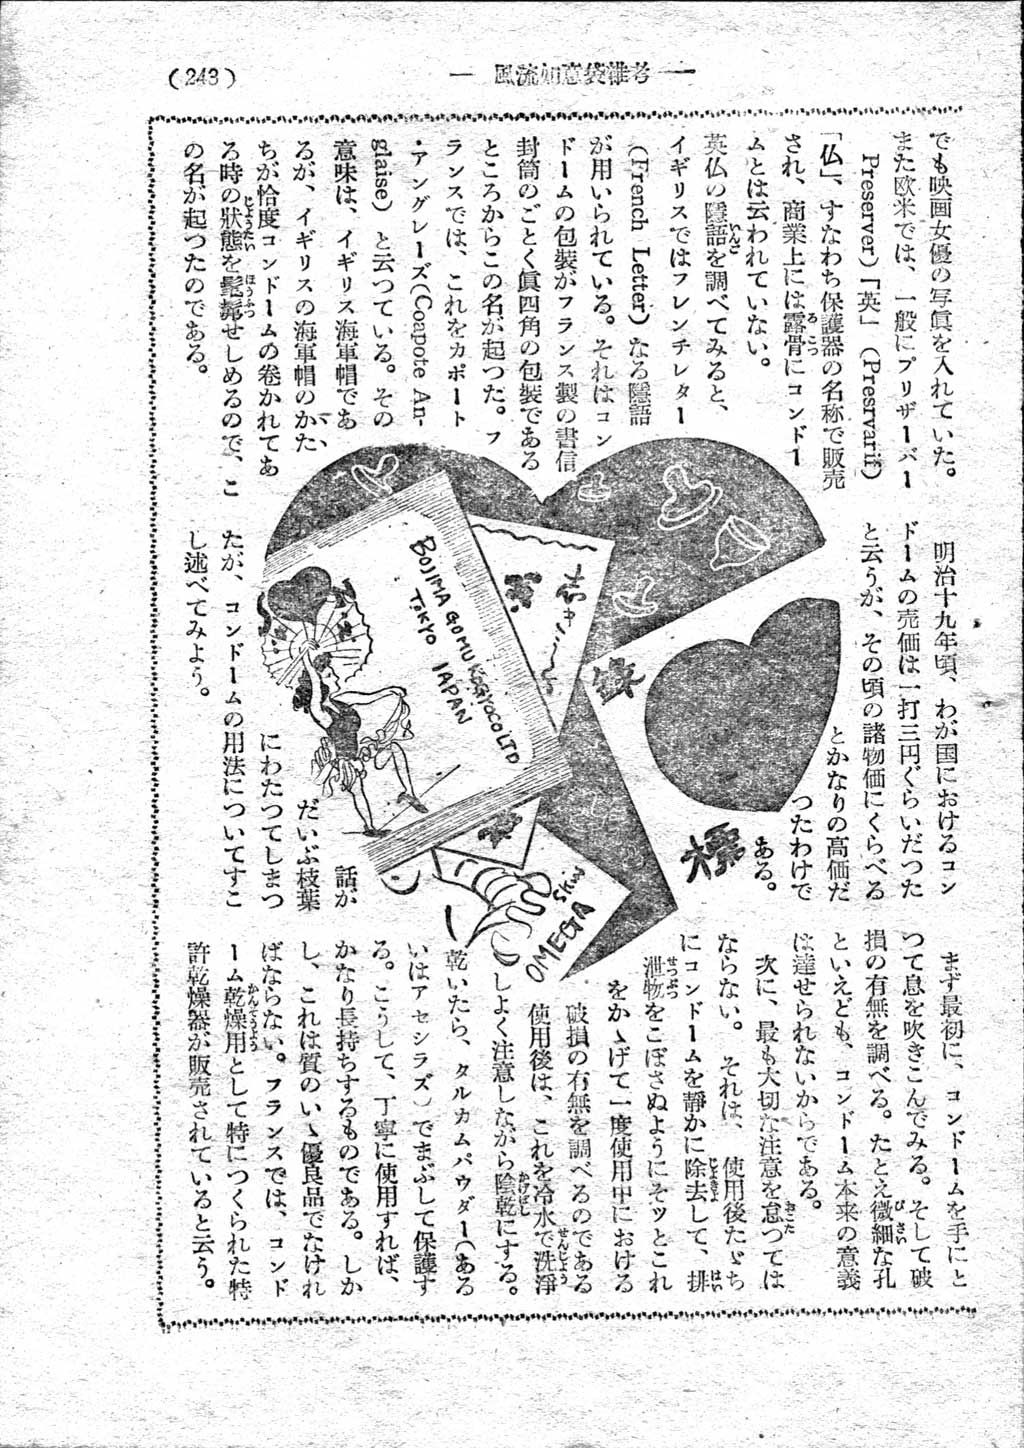 (243)
― 風流如意袋雑考 ―
でも映画女優の写眞を入れていた。
また欧米では、一般にプリザーバー
Preserver)『英」(Presrvarif)
「仏」、すなわち保護器の名称で販売
され、商業上には露骨にコンドー
ムとは云われていない。
英仏の隠語を調べてみると、
イギリスではフレンチレター
(French Letter)なる隠語
が用いられている。それはコン
ドームの包装がフランス製の書信
封筒のごとく眞四角の包装である
ところからこの名が起つた。フ
ランスでは、これをカポート
・アングレーズ(Coapote An-
glaise)と云つている。その
意味は、イギリス海軍帽であ
るが、イギリスの海軍帽のかた
ちが恰度コンドームの巻かれてあ
る時の狀態を髣髴せしめるので、こ
の名が起つたのである。
明治十九年頃、わが国におけるコン
ドームの売価は一打三円ぐらいだつた
と云うが、その頃の諸物価にくらべる
とかなりの高価だ
つたわけで
ある。
話が
だいぶ枝葉
にわたつてしまつ
たが、コンドームの用法についてすこ
し述べてみよう。
まず最初に、コンドームを手にと
つて息を吹きこんでみる。そして破
損の有無を調べる。たとえ微細な孔
といえども、コンドーム本来の意義
は達せられないからである。
次に、最も大切な注意を怠つては
ならない。それは、使用後たゞち
にコンドームを静かに除去して、排
泄物をこぼさぬようにそッとこれ
をかゝげて一度使用中における
破損の有無を調べるのである
使用後は、これを冷水で洗淨
しよく注意しながら陰乾にする。
乾いたら、タルカムパウダー(ある
いはアセシラズ)でまぶして保護す
る。こうして、丁寧に使用すれば、
かなり長持ちするものである。しか
し、これは質のいゝ優良品でなけれ
ばならない。フランスでは、コンド
ーム乾燥用として特につくられた特
許乾燥器が販売されていると云う。
BOJIMA GOMU KOGYO CO LTD
TOKYO JAPAN
SKIN
OMEGA
標